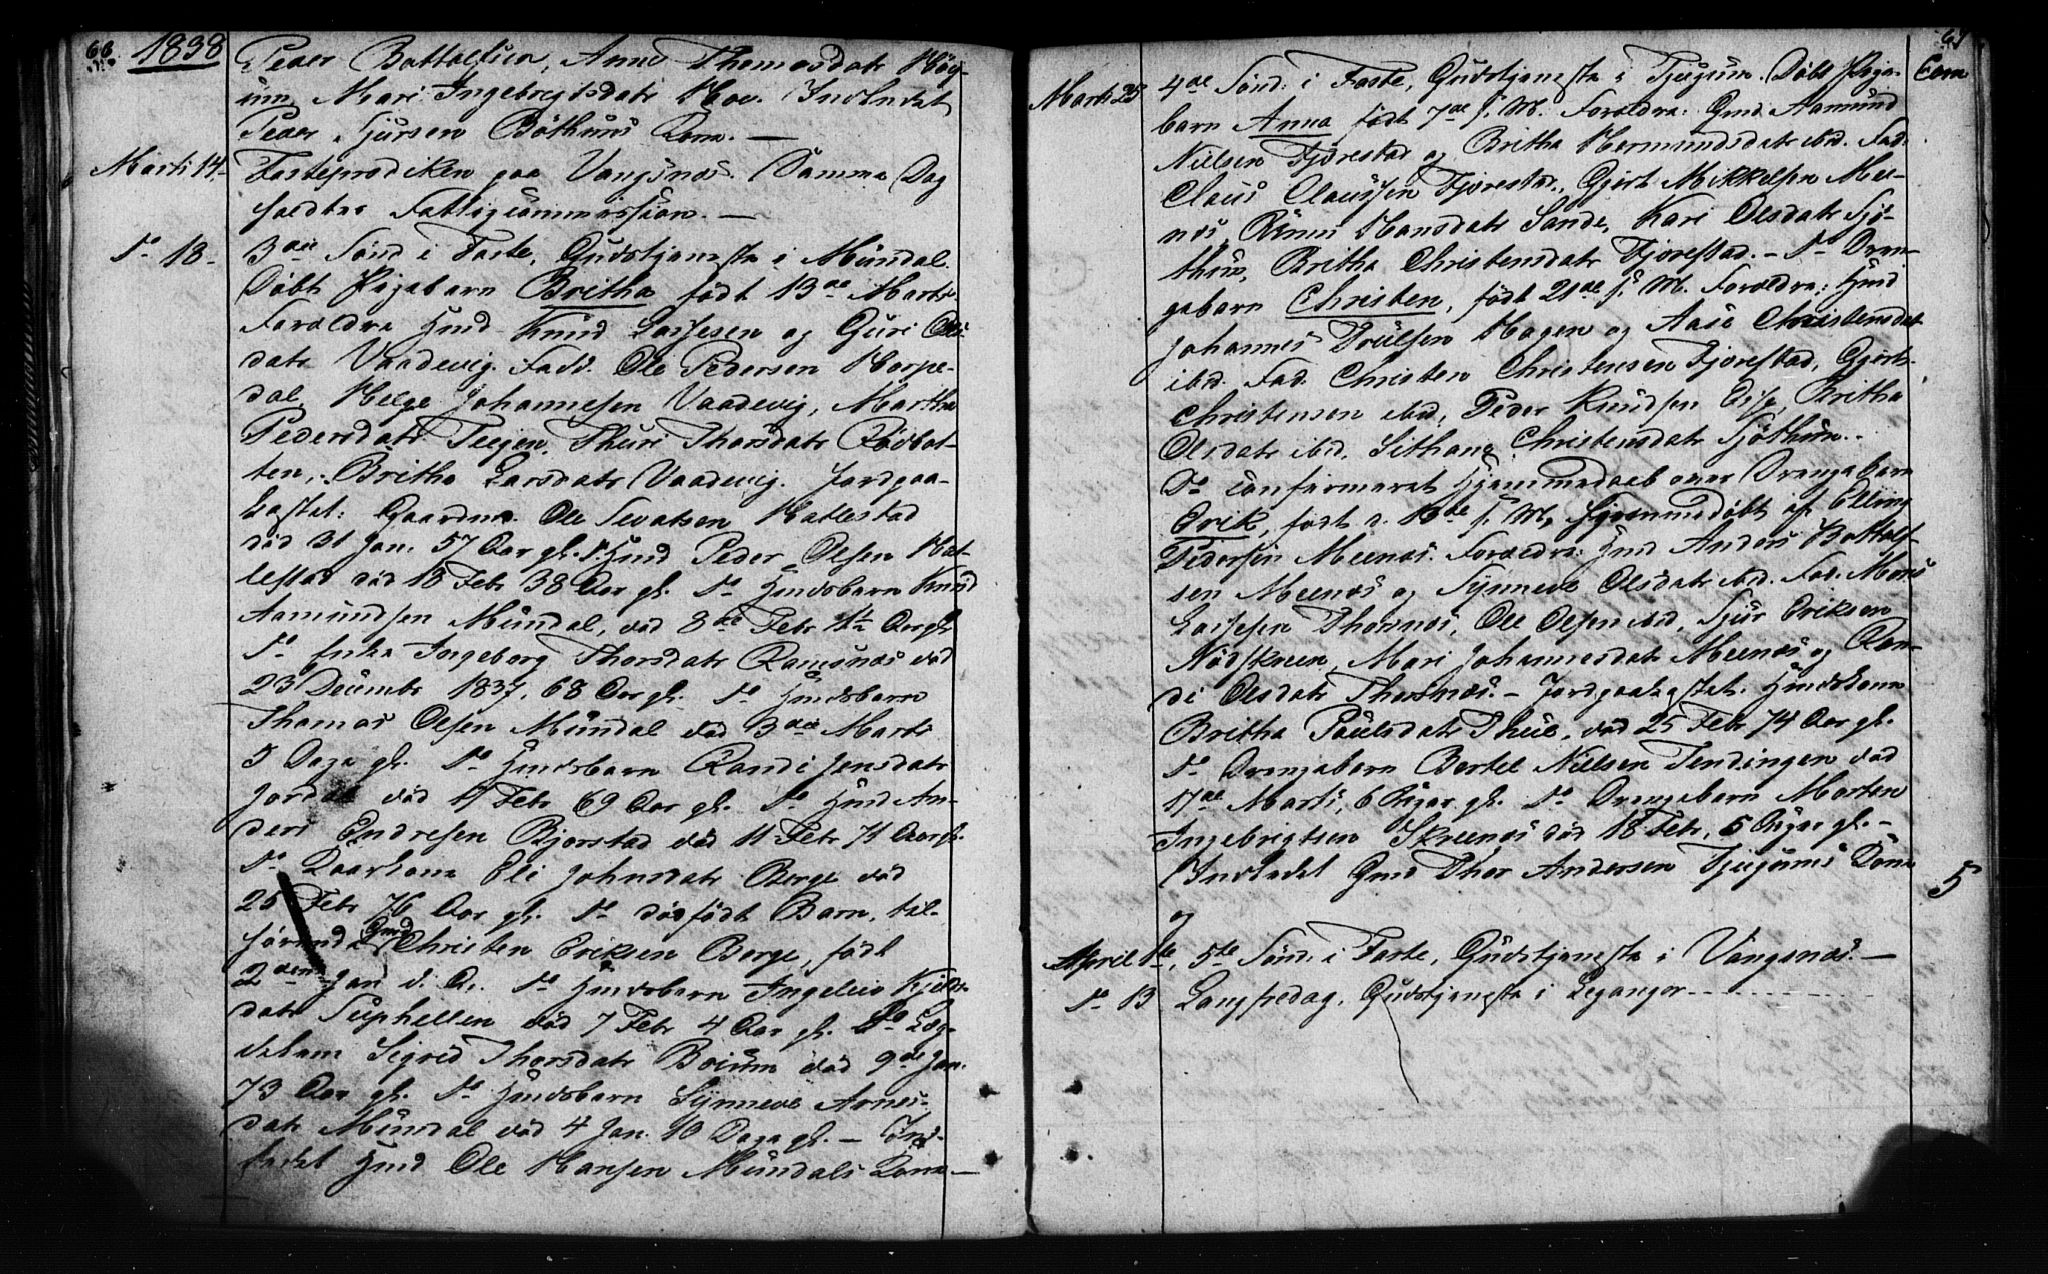 66 1838
Peder Battolfsen, Anne Thomasdatr Høy-
um, Mari Ingebrigtsdatr Hov. Indledet
Peder Sjursen Bøthuns Kone. —
Marti 14. Fasteprædiken paa Vangsnæs. Samme Dag
holdtes Fattigcommission. —
Do 18 - 3die Sønd i Faste, Gudstjeneste i Mundal.
Døbt Pigebarn Britha født 13de Marts.
Forældre Hmd Knud Lassesen og Guri Ols
datr Vaadevig. Fadd. Ole Pedersen Horpe-
dal, Helge Johannesen Vaadevig, Martha
Pedersdatr Teigen, Thuri Thorsdatr Rødbot-
ten, Britha Larsdatr Vaadevig. Jordpaa-
kastet: Gaardm. Ole Sevatsen Hatlestad
død 31 Jan. 57 Aar gl. Do Hmd Peder Olsen Hat-
lestad død 18 Febr 38 Aar gl. Do Hmdsbarn Knud
Aamundsen Mundal, død 8de Febr Aar gl.
Do Enke Ingeborg Thorsdatr Ramsnæs død
23 Decembr 1837, 68 Aar gl. Do Hmdsbarn
Thomas Olsen Mundal død 3die Marts
5 Dage gl. Do Hmdsbarn Randi Jensdatr
Jordal død Febr 69 Aar gl. Do Hmd An-
ders Endresen Bjørstad død 11 Febr 71 Aar gl.
Do Kaarkone Eli Johnsdatr Berge død
25 Febr 76 Aar gl. Do dødfødt Barn, til-
hørende Gmd Christen Eriksen Berge, født
2den Jan d. A. Do Hmdsbarn Ingeleiv Kjelds
datr Suphellen død 7 Febr 4 Aar gl. Do Læg-
dslem Sigrid Thorsdatr Boium død 9de Jan.
73 Aar gl. Do Hmdsbarn Synneve Arnes-
datr Mundal død 4 Jan. 10 Dage gl. — Ind-
ledet Hmd Ole Hansen Mundals Kone —
67
Com
Marti 25 4de Sønd: i Faste, Gudstjeneste i Tjugum. Døbt Pige-
barn Anna født 7de s. M. Forældre: Gmd Aamund
Nielsen Fjørestad og Britha Hermundsdatr ibd. Fad.
Claus Claussen Fjørestad, Gjert Mikkelsen Mee-
næs, Hansdatr Sande, Kari Olsdatr Sjø-
thun, Britha Christensdatr Fjørestad. - Do Dren-
gebarn Christen, født 21de s. M. Forældre: Hmd
Johannes Trulsen Hagen og Aase Christensdatr
ibd. Fad. Christen Christensen Fjørestad, Gjert
Christensen ibd, Peder Knudsen Britha
Olsdatr ibd, Christensdatr Sjøthun.
Do confirmeret Hjemmedaab over Drengebarn
Erik, født d. s. M, hjemmedøbt af Elling
Pedersen Meenæs. Forældre: Hmd Anders Bottolf-
sen Meenæs og Synneve Olsdatr ibd. Fad. Mons
Lassesen Thornæs, Ole Olsen ibd, Sjur Eriksen
Nødskreen, Mari Johannesdatr Meenæs og Ran-
di Olsdatr Thornæs. - Jordpaakastet: Hmdskone
Britha Paulsdatr Thue, død 25 Febr 74 Aar gl.
Do Drengebarn Bertel Nielsen Tendingen død
17de Marti, 6 Uger gl. Do Drengebarn Morten
Ingebrigtsen Skreenæs død 18 Febr, 5 Uger gl. -
Indledet Gmd Thor Andersen Tjugums Kone 5
og
April 1te, 5te Sønd: i Faste, Gudstjeneste i Vangsnæs. —
Do 13 Langfredag, Gudstjeneste i Leganger